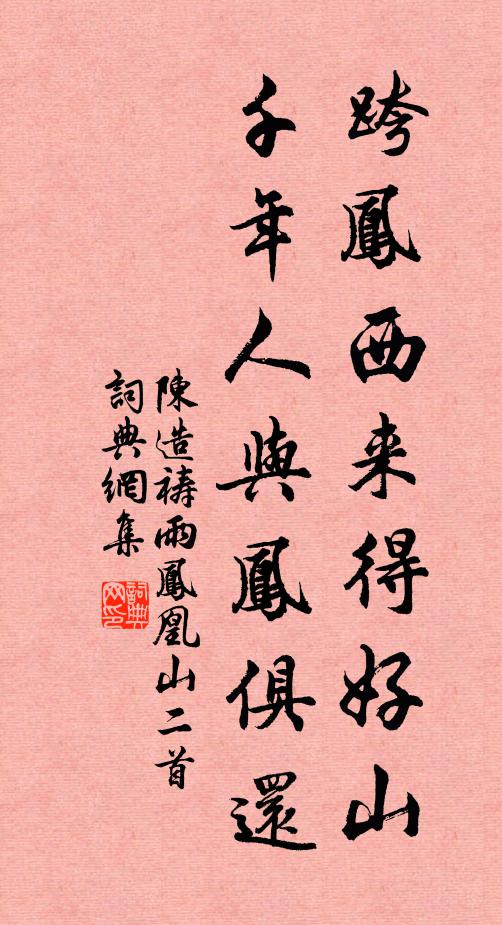 跨鳳西来得好山
千年人與鳳俱還
陳造禱雨鳳凰山二首
詞典網集
詞典网印